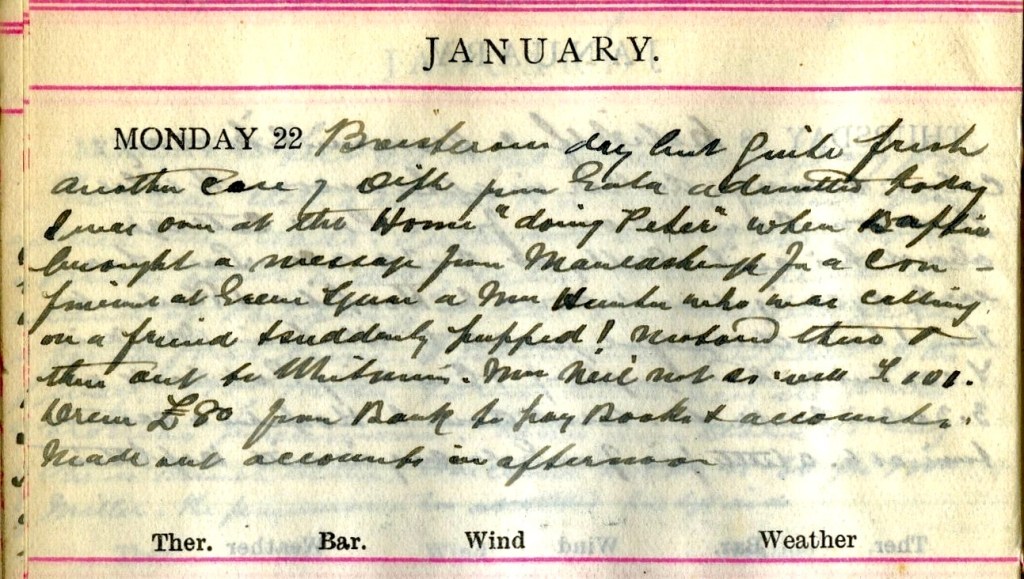 JANUARY.
MONDAY 22 Boisterous day but quite fresh
another case of Diph from admitted today
I was over at the Home "doing Peter" when
brought a message from for a con-
finement at Green a Mrs Hunter who was calling
on a friend & suddenly pupped! Motored there &
then out to . Mrs Neil not so well T 101.
Drew £80 from Bank to pay Books & accounts.
Made out accounts in afternoon
Ther. Bar. Wind Weather